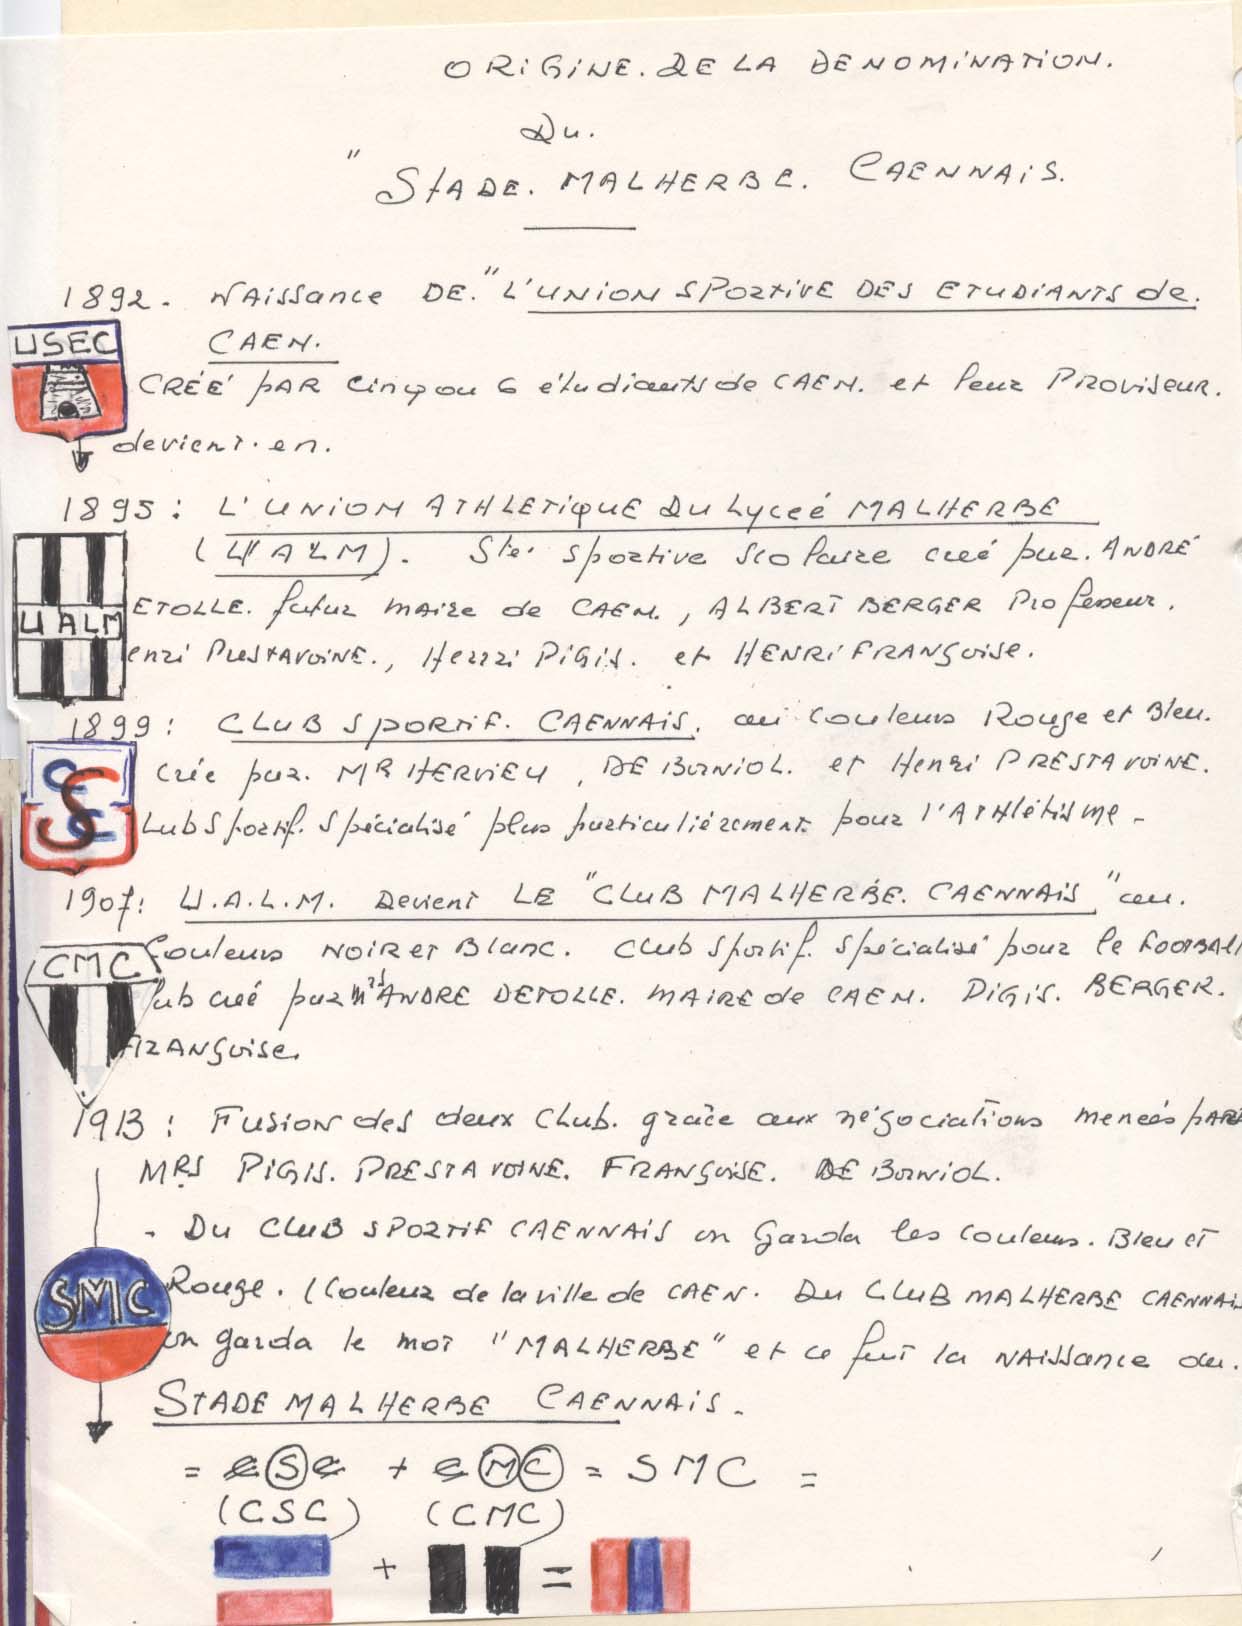 ORIGINE. DE LA DENOMINATION.
Du.
" STADE. MALHERBE. CAENNAIS.
1892. NAissance DE. "L'UNION SPORTIVE DES ETUDIANTS de.
CAEN.
USEC
CRÉÉ PAR cinq ou 6 étudiants de CAEN. et leur PROViseur.
devient. en.
1895: L'UNION ATHLETIQUE DU Lyceé MALHERBE
(UALM). Sté. sportive scolaire creé par. ANDRÉ
ETOLLE. futur maire de CAEN., ALBERT BERGER Professeur.
UALM
enri PRESTAVOINE., Henri PIGIS. et HENRI FRANÇOISE.
1899: CLUB SPORTIF. CAENNAIS. au couleurs Rouge et Bleu.
CSC
crée par. MR HERVIEU, DE BORNIOL. et Henri PRESTAVOINE.
lub Sportif. spécialisé plus particuliérement pour l'Athlétisme -
1907: U.A.L.M. Devient LE "CLUB MALHERBE. CAENNAIS" au.
couleurs NOIR et BLANC. Club Sportif. spécialisé pour le FOOTBALL
CMC
lub creé par Mrs ANDRE DETOLLE. MAIRE de CAEN. PIGIS. BERGER.
FRANÇOISE.
1913: FUSION des deux Club. grâce aux négociations menées PAR
MRS PIGIS. PRESTAVOINE. FRANÇOISE. DE BORNIOL.
- DU CLUB SPORTIF CAENNAIS on Garda les couleurs. Bleu et
SMC
Rouge. (Couleur de la ville de CAEN. DU CLUB MALHERBE CAENNAIS
on garda le mot "MALHERBE" et ce fut la NAISSANCE du.
STADE MALHERBE CAENNAIS.
= CSC + CMC = SMC =
(CSC) (CMC)
+ =